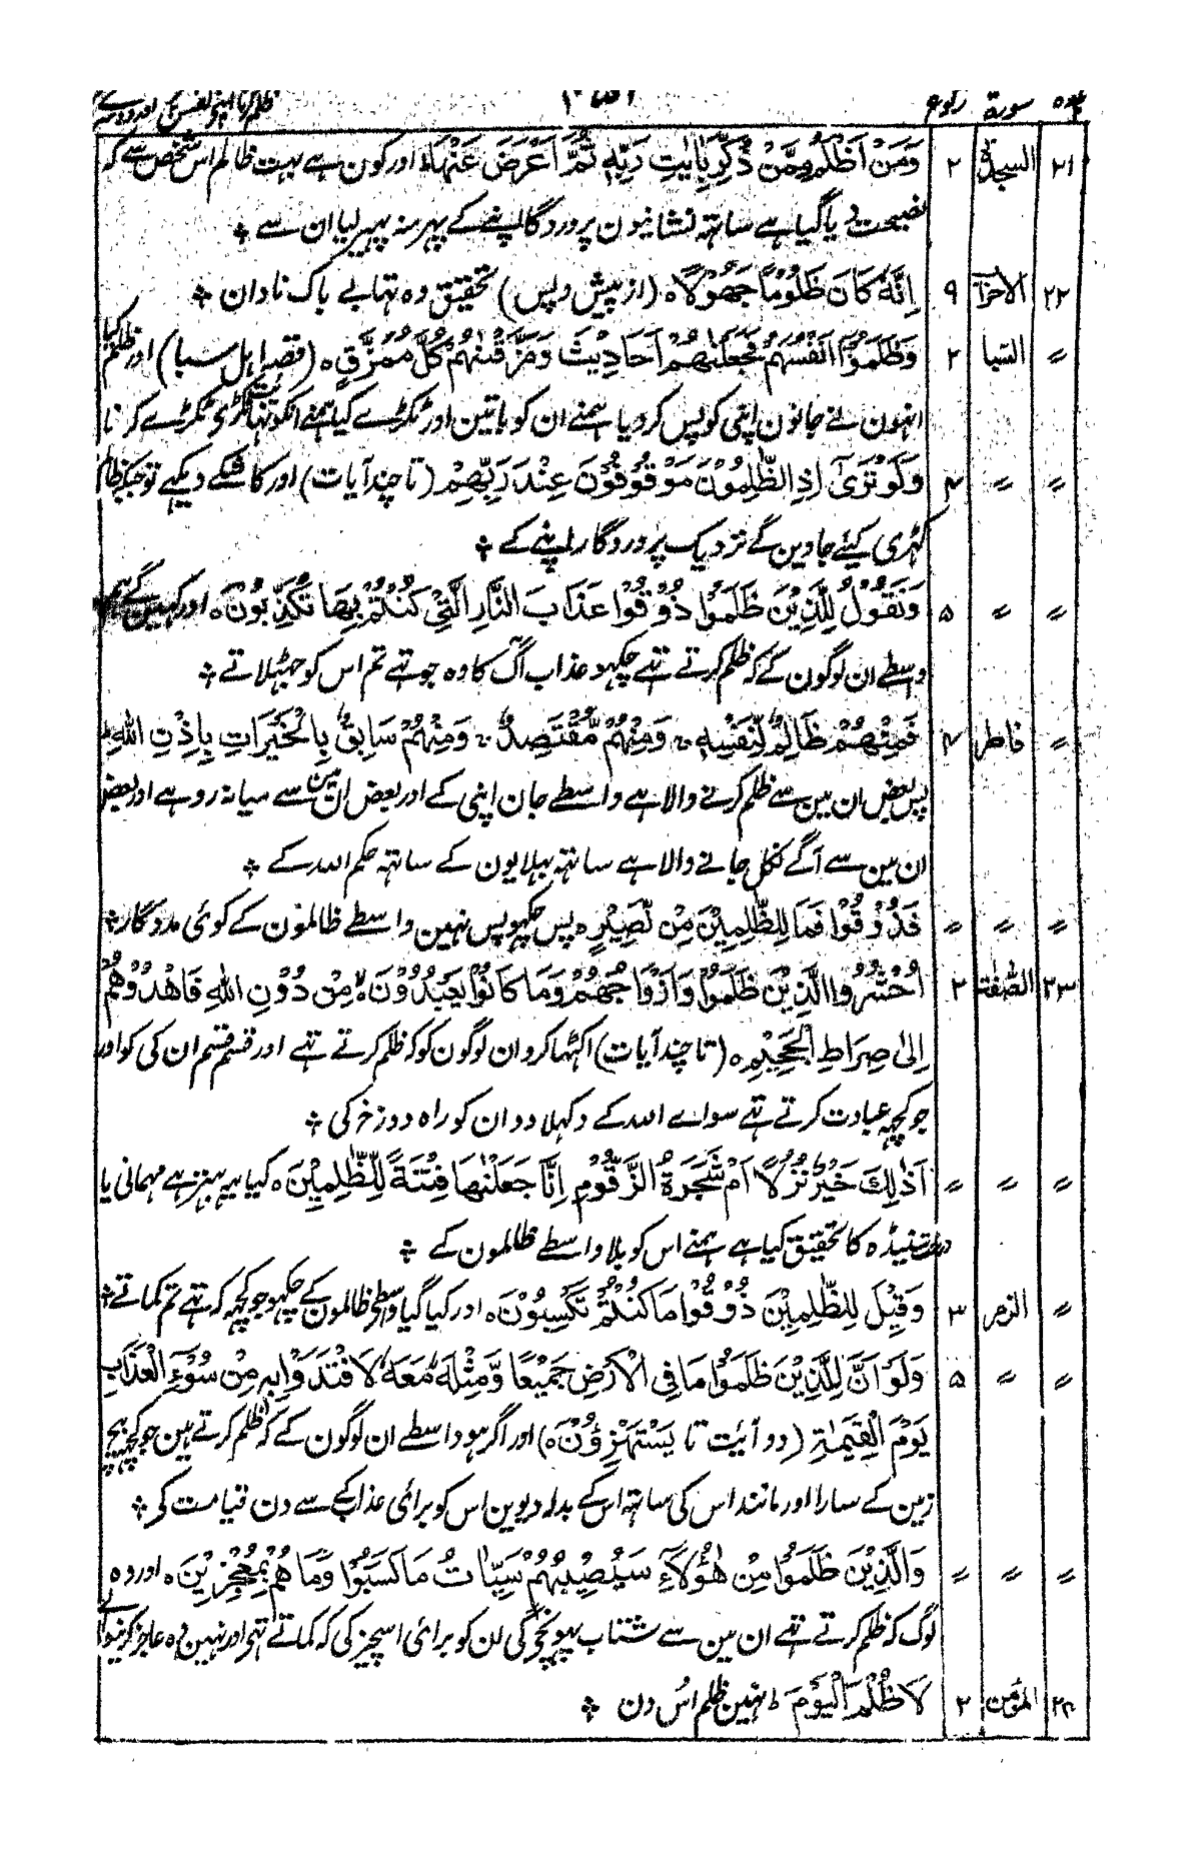 پارہ سورۃ رکوع
۲۱ السجدۃ ۲ وَمَنْ اَظْلَمُ مِمَّنْ ذُكِّرَ بِاٰيٰتِ رَبِّهٖ ثُمَّ اَعْرَضَ عَنْهَا ؕ اور کون ہے بہت ظالم اس شخص سے کہ
نصیحت دیا گیا ہے ساتہ نشانیون پروردگار اپنے کے پہر منہ پہیر لیا ان سے ؞
۲۲ الاحزاب ۹ اِنَّهٗ كَانَ ظَلُوْمًا جَهُوْلًا ہ (از پیش و پس) تحقیق وہ تہا بے باک نادان ؞
〃 السّبا ۲ وَظَلَمُوْٓا اَنْفُسَهُمْ فَجَعَلْنٰهُمْ اَحَادِيْثَ وَمَزَّقْنٰهُمْ كُلَّ مُمَزَّقٍ ہ (قصہ اہل سبا) اور ظلم کیا
انہون نے جانون اپنی کو پس کر دیا ہمنے ان کو باتین اور ٹکڑے کیا ہمنے انکو نہایت ٹکڑی ٹکڑے کرنا
〃 〃 ۴ وَلَوْ تَرٰٓى اِذِ الظّٰلِمُوْنَ مَوْقُوْفُوْنَ عِنْدَ رَبِّهِمْ (تا چند آیات) اور کاشکے دیکہے تو جبکہ ظالم
کہڑی کیئے جاوین گے نزدیک پروردگار اپنے کے ؞
〃 〃 ۵ وَنَقُوْلُ لِلَّذِيْنَ ظَلَمُوْا ذُوْقُوْا عَذَابَ النَّارِ الَّتِيْ كُنْتُمْ بِهَا تُكَذِّبُوْنَ ہ اور کہین گے ہم
واسطے ان لوگون کے کہ ظلم کرتے تہے چکہو عذاب آگ کا وہ جو تہے تم اس کو جہٹلاتے ؞
〃 فاطر ۴ فَمِنْهُمْ ظَالِمٌ لِّنَفْسِهٖ ۚ وَمِنْهُمْ مُّقْتَصِدٌ ۚ وَمِنْهُمْ سَابِقٌۢ بِالْخَيْرَاتِ بِاِذْنِ اللهِ ؕ
پس بعض ان مین سے ظلم کرنے والا ہے واسطے جان اپنی کے اور بعض ان مین سے میانہ رو ہے اور بعض
ان مین سے آگے نکل جانے والا ہے ساتہ بہلایون کے ساتہ حکم اللہ کے ؞
〃 〃 〃 فَذُوْقُوْا فَمَا لِلظّٰلِمِيْنَ مِنْ نَّصِيْرٍ ہ پس چکہو پس نہین واسطے ظالمون کے کوئی مددگار ؞
۲۳ الصّٰفّٰت ۲ اُحْشُرُوا الَّذِيْنَ ظَلَمُوْا وَاَزْوَاجَهُمْ وَمَا كَانُوْا يَعْبُدُوْنَ ہ مِنْ دُوْنِ اللهِ فَاهْدُوْهُمْ
اِلٰى صِرَاطِ الْجَحِيْمِ ہ (تا چند آیات) اکٹہا کرو ان لوگون کو کہ ظلم کرتے تہے اور قسم قسم ان کی کو اور
جو کچہہ عبادت کرتے تہے سواے اللہ کے دکہلا دو ان کو راہ دوزخ کی ؞
〃 〃 〃 اَذٰلِكَ خَيْرٌ نُّزُلًا اَمْ شَجَرَةُ الزَّقُّوْمِ اِنَّا جَعَلْنٰهَا فِتْنَةً لِّلظّٰلِمِيْنَ ہ کیا یہ بہتر ہے مہمانی یا
درخت سینڈہ کا تحقیق کیا ہے ہمنے اس کو بلا واسطے ظالمون کے ؞
〃 الزمر ۳ وَقِيْلَ لِلظّٰلِمِيْنَ ذُوْقُوْا مَا كُنْتُمْ تَكْسِبُوْنَ ہ اور کہا گیا واسطے ظالمون کے چکہو جو کچہہ کہ تہے تم کماتے ؞
〃 〃 ۵ وَلَوْ اَنَّ لِلَّذِيْنَ ظَلَمُوْا مَا فِى الْاَرْضِ جَمِيْعًا وَّمِثْلَهٗ مَعَهٗ لَافْتَدَوْا بِهٖ مِنْ سُوْٓءِ الْعَذَابِ
يَوْمَ الْقِيٰمَةِ (دو آیت تا يَسْتَهْزِءُوْنَ ہ) اور اگر ہو واسطے ان لوگون کے کہ ظلم کرتے ہین جو کچہہ بیچ
زمین کے سارا اور مانند اس کی ساتہ اس کے بدلہ دیوین اس کو برائی عذاب کے سے دن قیامت کی ؞
〃 〃 〃 وَالَّذِيْنَ ظَلَمُوْا مِنْ هٰٓؤُلَآءِ سَيُصِيْبُهُمْ سَيِّاٰتُ مَا كَسَبُوْا وَمَا هُمْ بِمُعْجِزِيْنَ ہ اور وہ
لوگ کہ ظلم کرتے تہے ان مین سے شتاب پہونچے گی ان کو برائی اسچیز کی کہ کماتے تہے اور نہین وہ عاجز کرنیوالے
۲۴ المؤمن ۲ لَا ظُلْمَ الْيَوْمَ ؕ نہین ظلم اُس دن ؞